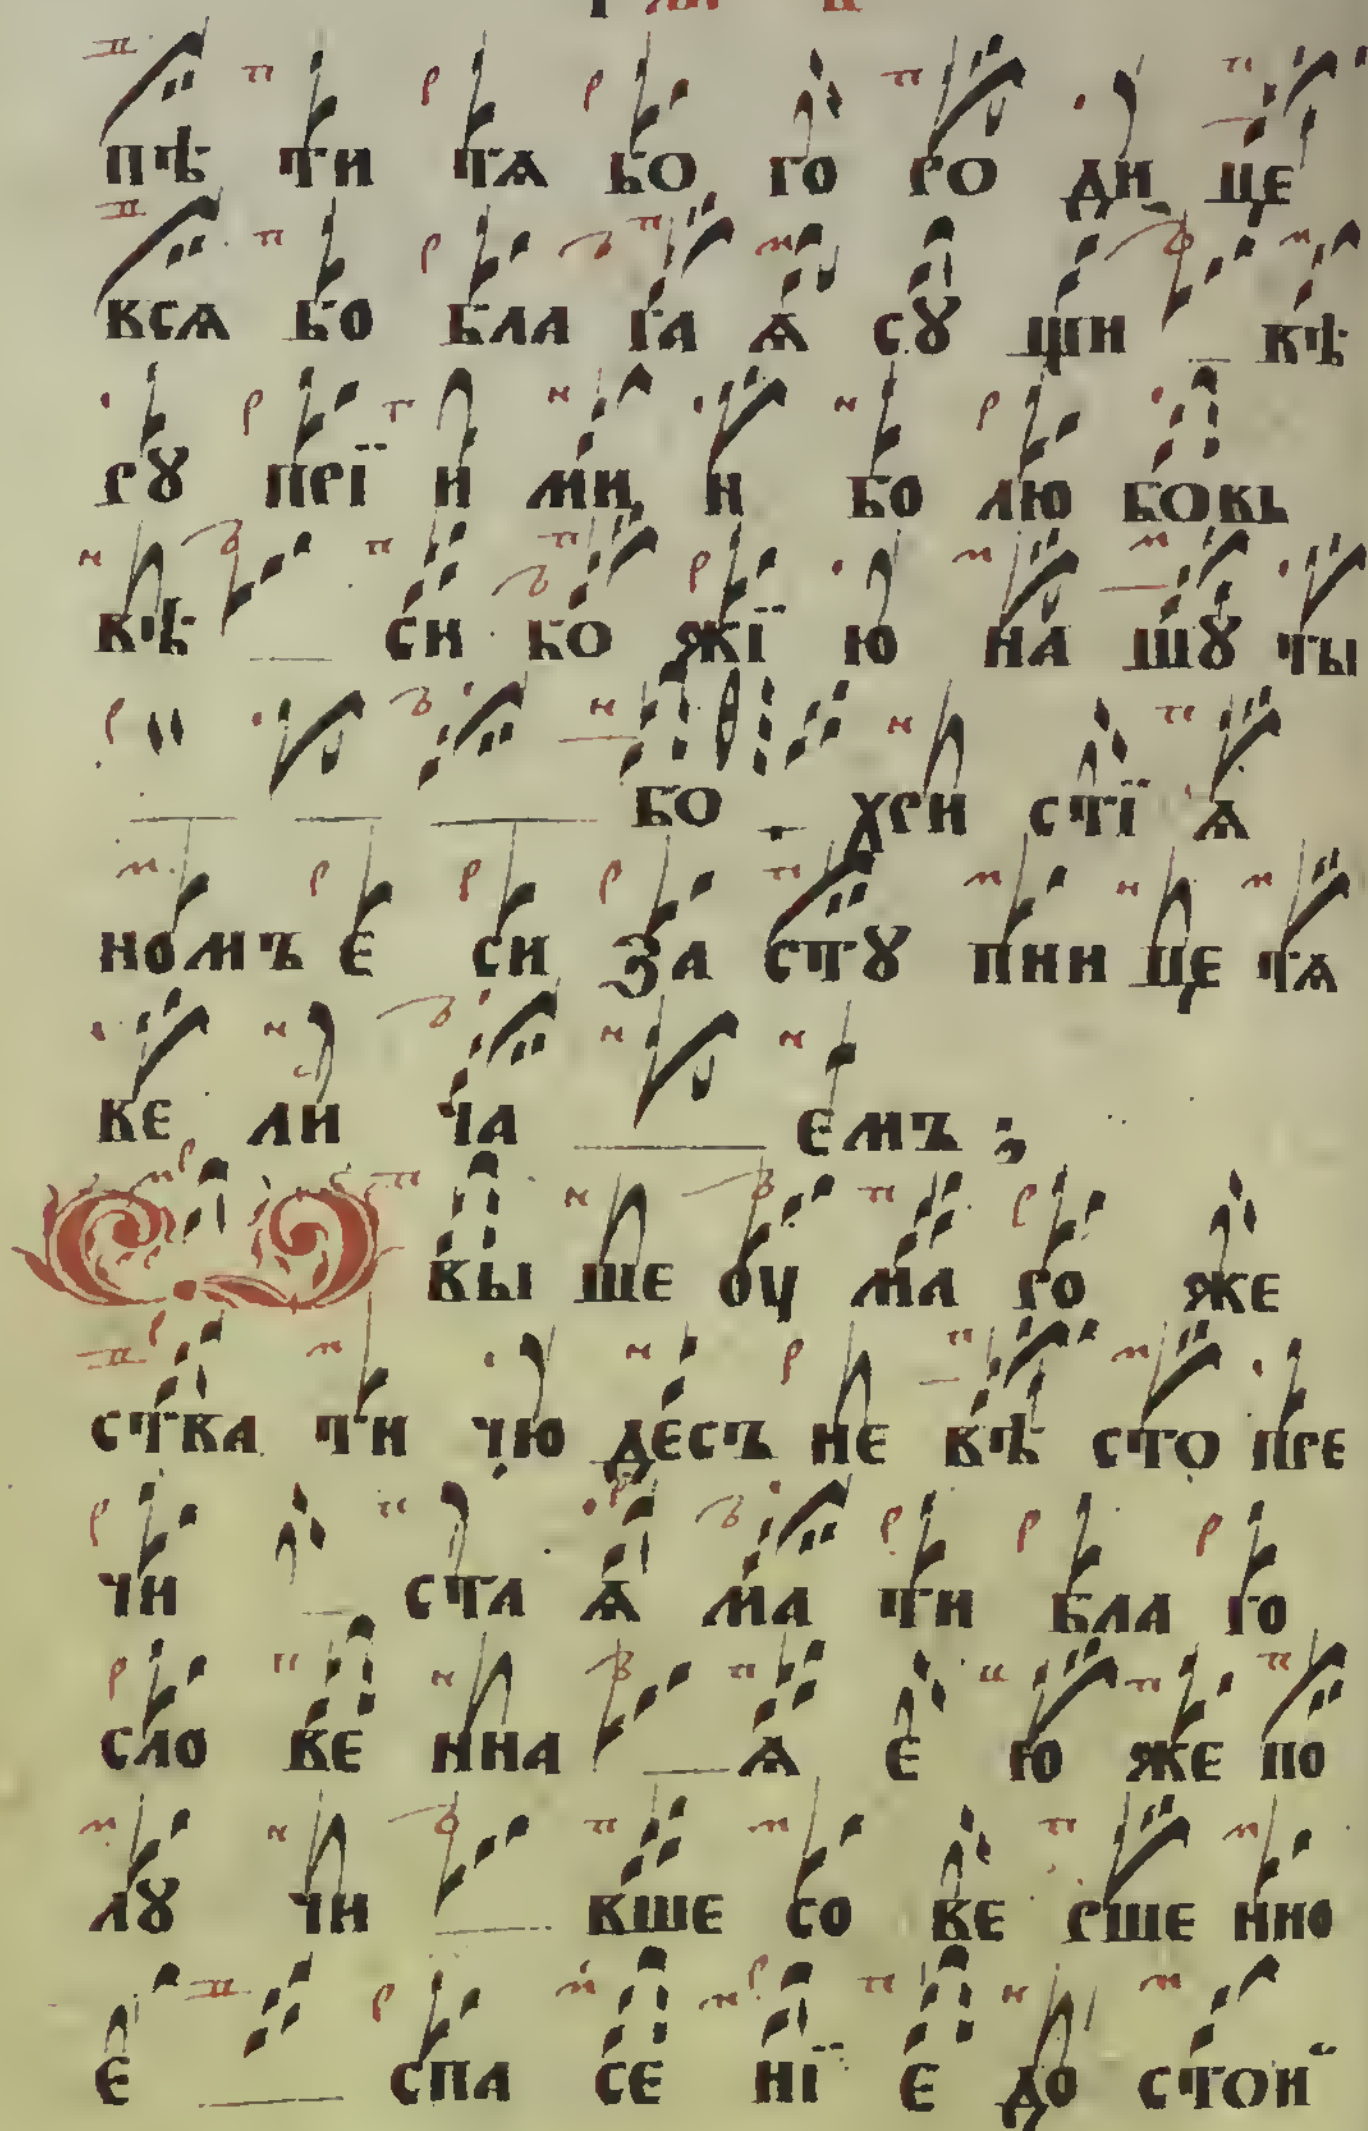 пѣ ти тѧ бо го ро ди це
всѧ бо бла га ѧ сꙋ щи _ вѣ
рꙋ прї и ми и бо лю бовь
вѣ _ си бо жї ю на шꙋ ты
бо _ хри стї ѧ
номъ е си за стꙋ пни це тѧ
ве ли ча _ емъ ;
Ѡ вы ше оу ма го же
ства ти чю десъ не вѣ сто пре
чи _ ста ѧ ма ти бла го
сло ве нна _ ѧ е ю же по
лꙋ чи _ вше со ве рше нно
е _ спа се нї е до стои